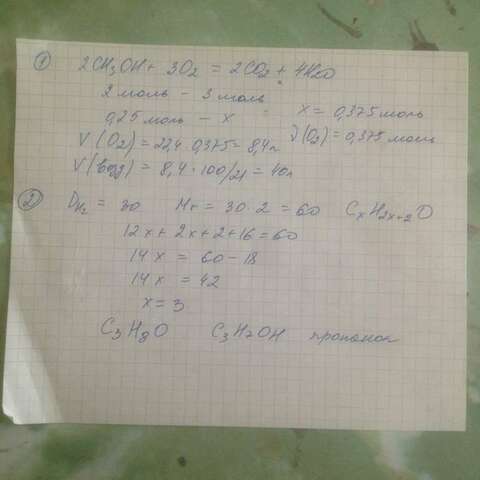 1) 2CH₃OH + 3O₂ = 2CO₂ + 4H₂O
2 моль - 3 моль
0,25 моль - x x = 0,375 моль
V(O₂) = 22,4 · 0,375 = 8,4л ν(O₂) = 0,375 моль
V(возд) = 8,4 · 100/21 = 40л
2) D_H₂ = 30 Mr = 30 · 2 = 60 CxH2x+2O
12x + 2x + 2 + 16 = 60
14x = 60 - 18
14x = 42
x = 3
C₃H₈O C₃H₇OH пропанол